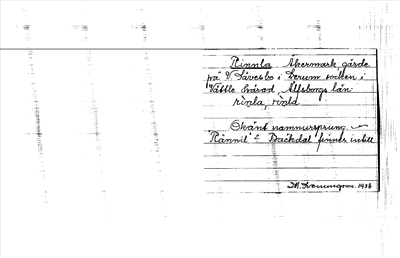 Rinnla Åkermark, gärde
på V. Sävesbo i Lerum socken i
Vättle härad, Älfsborgs län.
rinla, rinld
Okänt namnursprung –
"Rännil"? Bäckdal finnes intill
1938